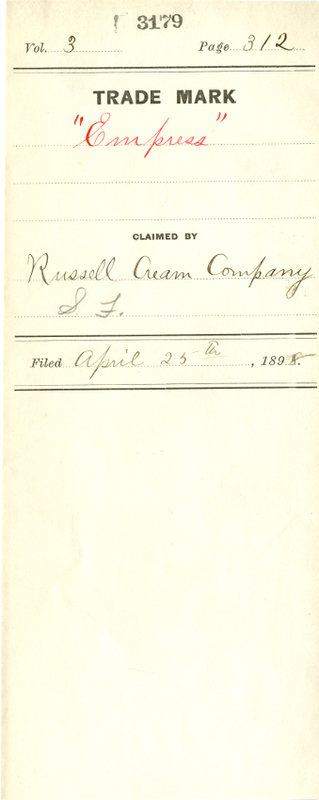 3179
Vol. 3 Page 312
TRADE MARK
"Empress"
CLAIMED BY
Russell Cream Company
S F.
Filed April 25th, 1898.